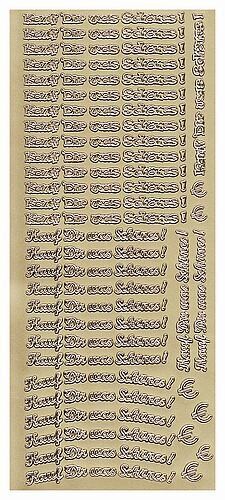 Kauf Dir was Schönes!
Kauf Dir was Schönes!
Kauf Dir was Schönes!
Kauf Dir was Schönes!
Kauf Dir was Schönes!
Kauf Dir was Schönes!
Kauf Dir was Schönes!
Kauf Dir was Schönes!
Kauf Dir was Schönes!
Kauf Dir was Schönes!
Kauf Dir was Schönes!
Kauf Dir was Schönes!
Kauf Dir was Schönes!
Kauf Dir was Schönes!
Kauf Dir was Schönes!
€
€
Kauf Dir was Schönes!
Kauf Dir was Schönes!
Kauf Dir was Schönes!
Kauf Dir was Schönes!
Kauf Dir was Schönes!
Kauf Dir was Schönes!
Kauf Dir was Schönes!
Kauf Dir was Schönes!
Kauf Dir was Schönes!
Kauf Dir was Schönes!
Kauf Dir was Schönes!
Kauf Dir was Schönes!
Kauf Dir was Schönes!
Kauf Dir was Schönes!
Kauf Dir was Schönes!
Kauf Dir was Schönes!
€
€
€
€
€
€